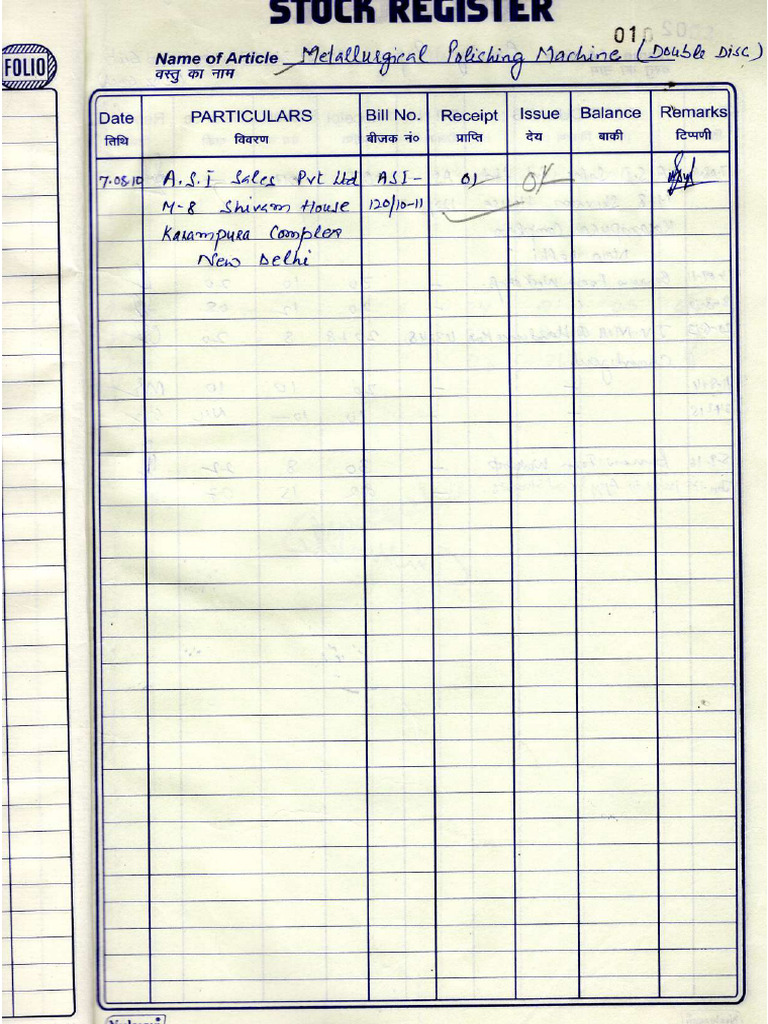 STOCK REGISTER
010
FOLIO
Name of Article Metallurgical Polishing Machine (Double Disc)
वस्तु का नाम
Date PARTICULARS Bill No. Receipt Issue Balance Remarks
तिथि विवरण बीजक नं० प्राप्ति देय बाकी टिप्पणी
7.08.10 A.S.I Sales Pvt Ltd ASI- 01 01
M-8 Shivam House 120/10-11
Karampura Complex
New Delhi